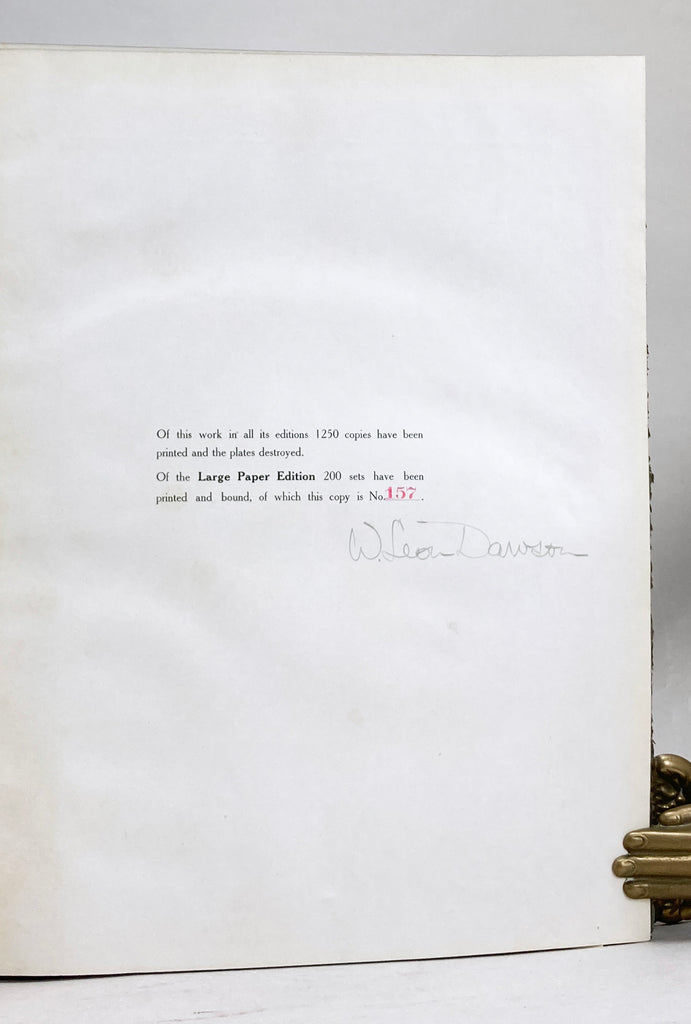 Of this work in all its editions 1250 copies have been
printed and the plates destroyed.
Of the Large Paper Edition 200 sets have been
printed and bound, of which this copy is No. 157.
W. Leon Dawson